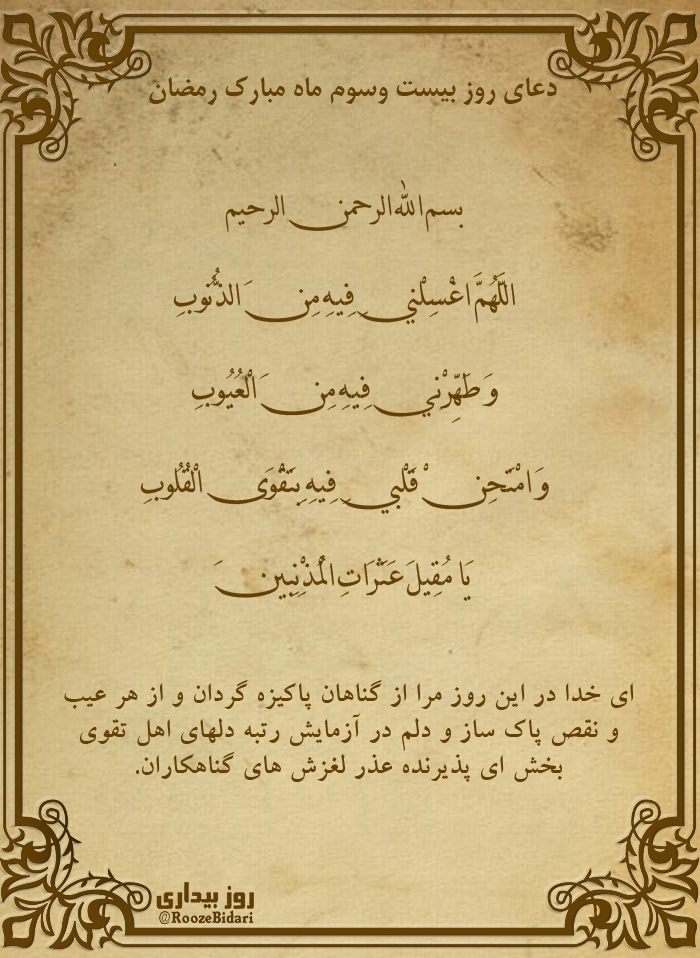 دعای روز بیست وسوم ماه مبارک رمضان
بسم الله الرحمن الرحیم
اللَّهُمَّ اغْسِلْنِي فِيهِ مِنَ الذُّنُوبِ
وَ طَهِّرْنِي فِيهِ مِنَ الْعُيُوبِ
وَ امْتَحِنْ قَلْبِي فِيهِ بِتَقْوَى الْقُلُوبِ
يَا مُقِيلَ عَثَرَاتِ الْمُذْنِبِينَ
ای خدا در این روز مرا از گناهان پاکیزه گردان و از هر عیب
و نقص پاک ساز و دلم در آزمایش رتبه دلهای اهل تقوی
بخش ای پذیرنده عذر لغزش های گناهکاران.
روز بیداری
@RoozeBidari